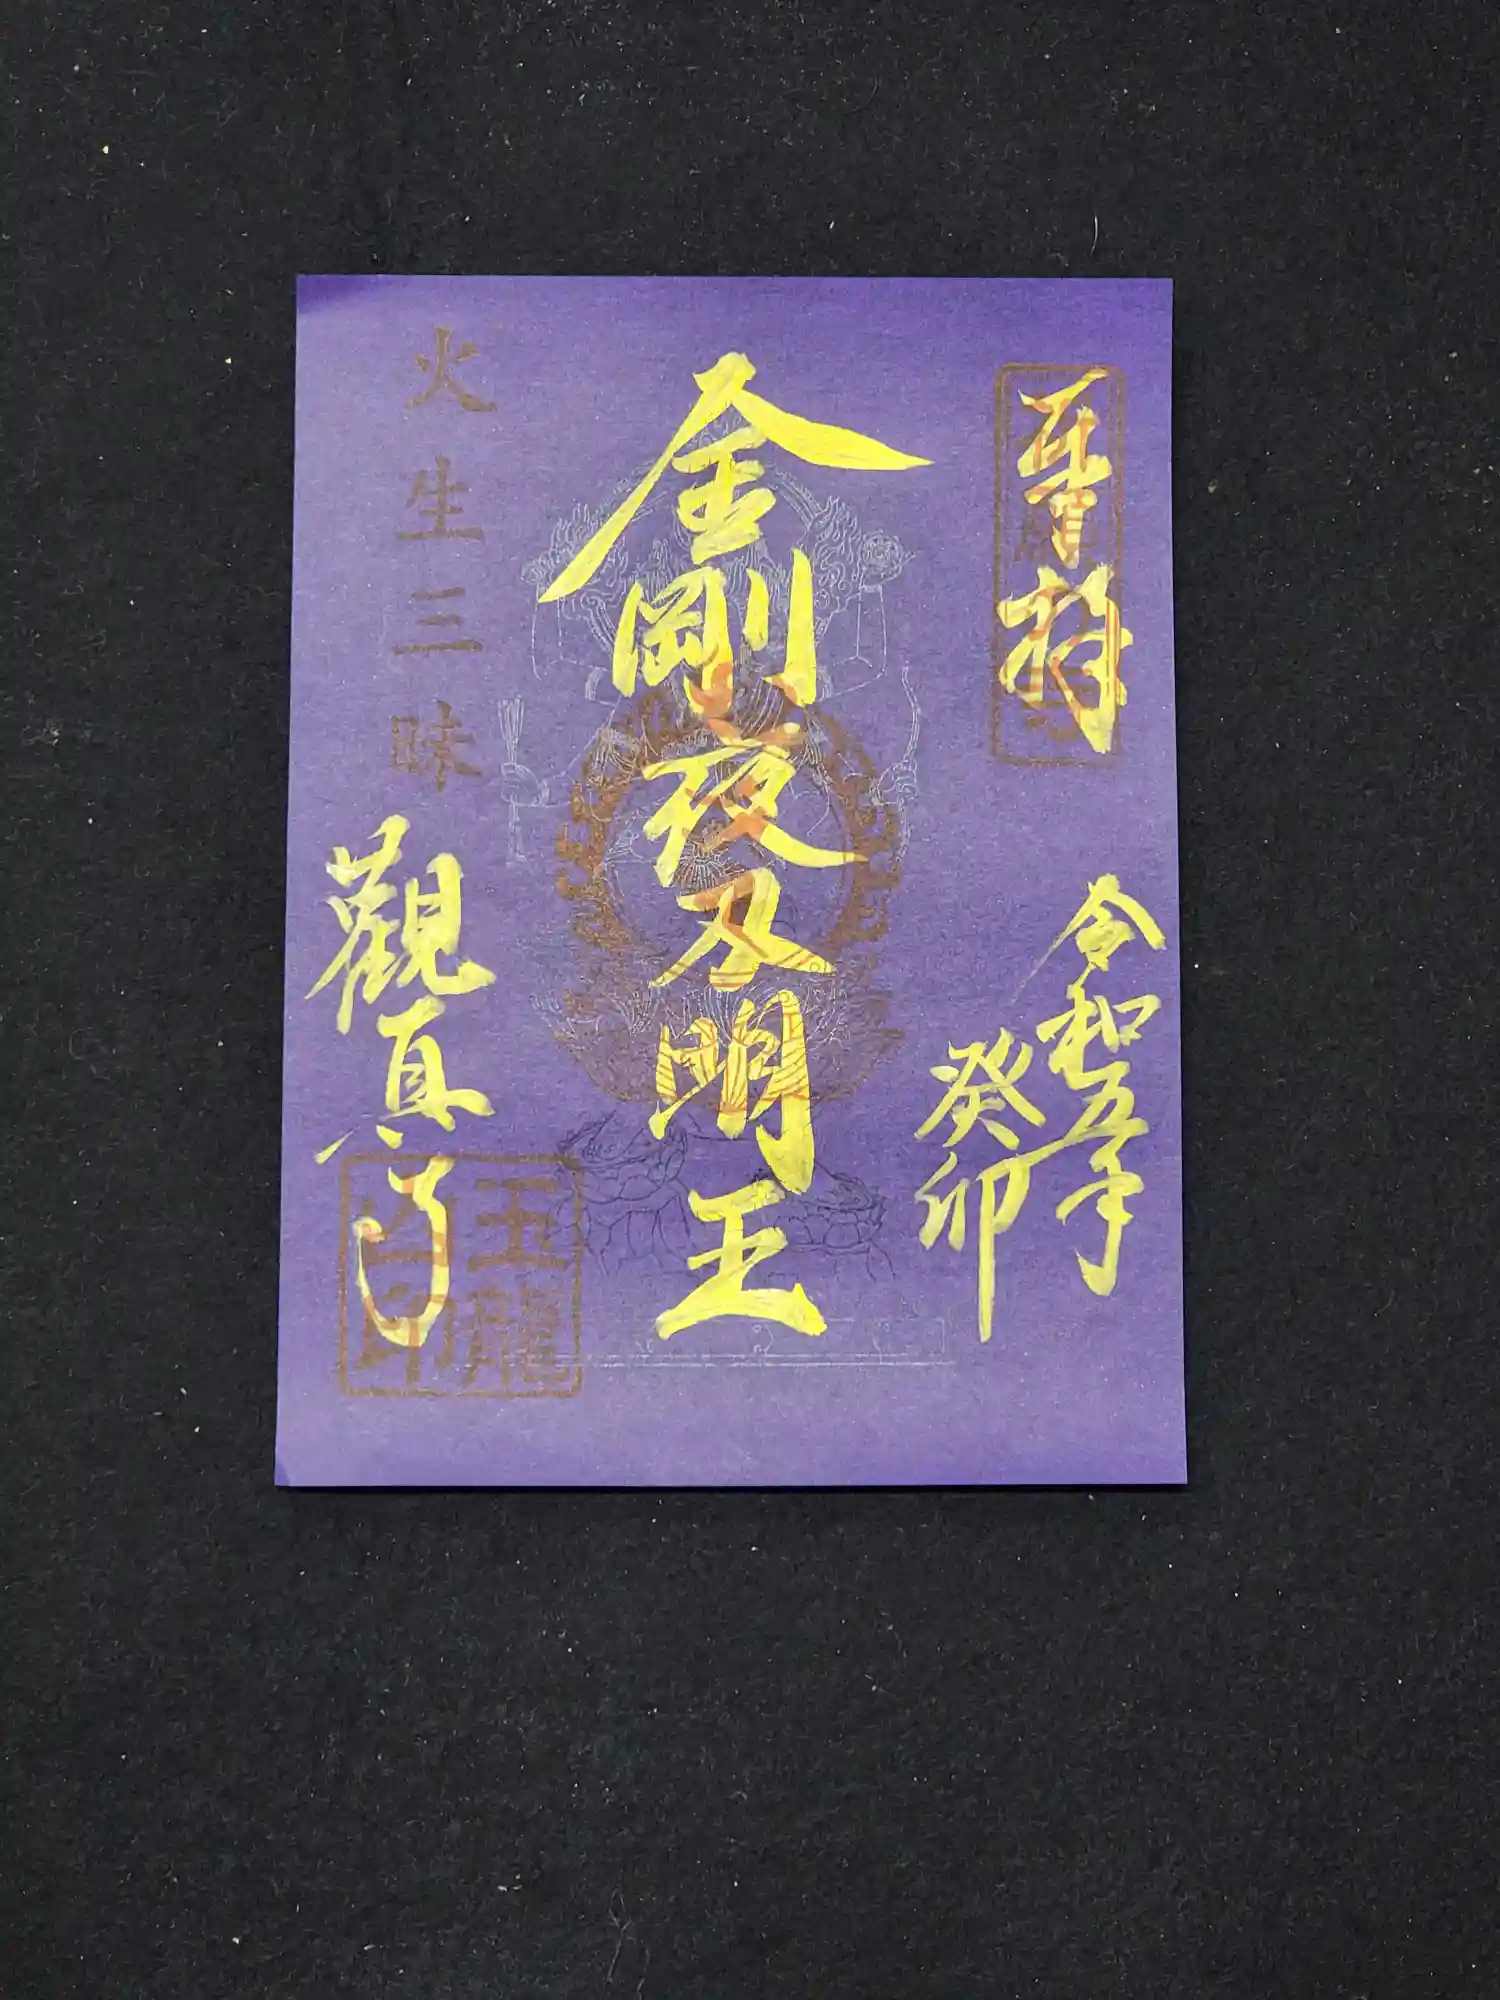 奉拝
令和五年
癸卯
金剛夜叉明王
火生三昧
觀真寺
玉龍
印